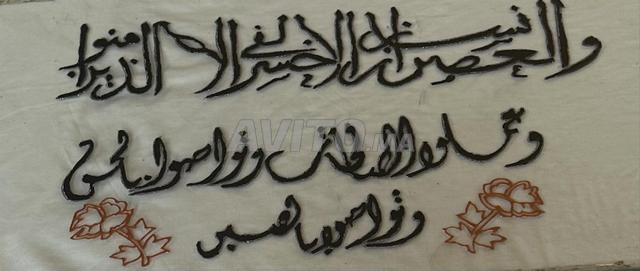 والعصر إن الإنسان لفي خسر إلا الذين آمنوا
وعملوا الصالحات وتواصوا بالحق
وتواصوا بالصبر
AVITO.MA